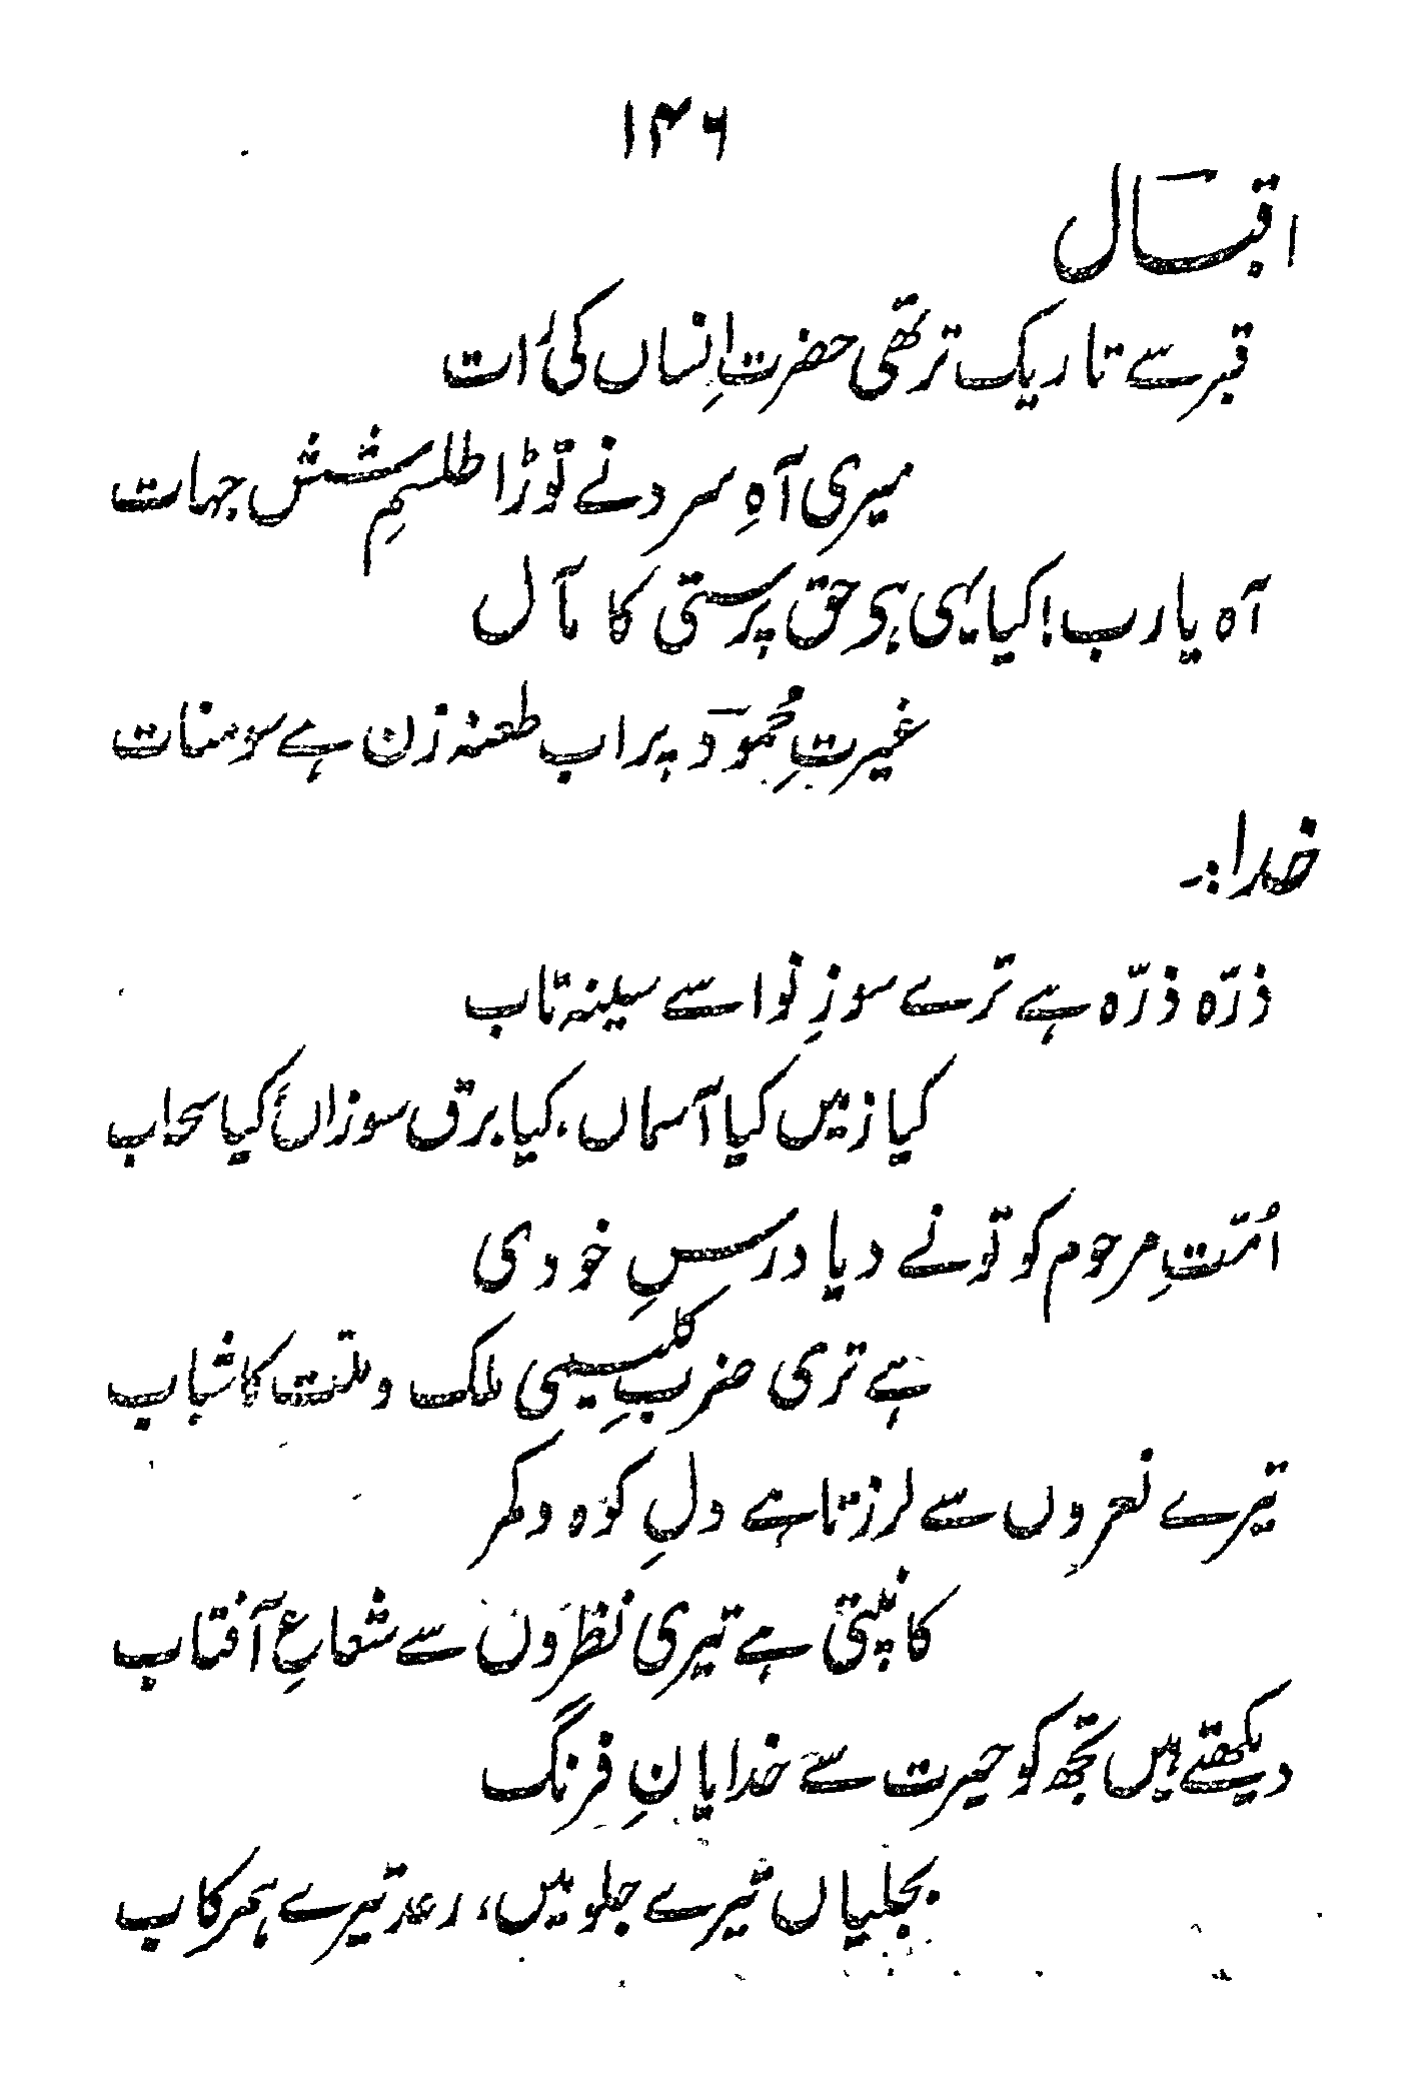 ۱۴۶
اقبال
قبر سے تاریک تر تھی حضرتِ انساں کی رات
میری آہِ سرد نے توڑا طلسمِ شش جہات
آہ یارب! کیا یہی ہو حق پرستی کا مآل
غیرتِ محمود پر اب طعنہ زن ہے سومنات
خدا:۔
ذرّہ ذرّہ ہے ترے سوزِ نوا سے سینہ تاب
کیا زمیں کیا آسماں، کیا برق سوزاں، کیا سحاب
اُمّتِ مرحوم کو تو نے دیا درسِ خودی
ہے تری ضربِ کلیمی ملک و ملّت کا شباب
تیرے نعروں سے لرزتا ہے دلِ کوہ و کمر
کانپتی ہے تیری نظروں سے شعاعِ آفتاب
دیکھتے ہیں تجھ کو حیرت سے خدایانِ فرنگ
بجلیاں تیرے جلو میں، رعد تیرے ہمرکاب